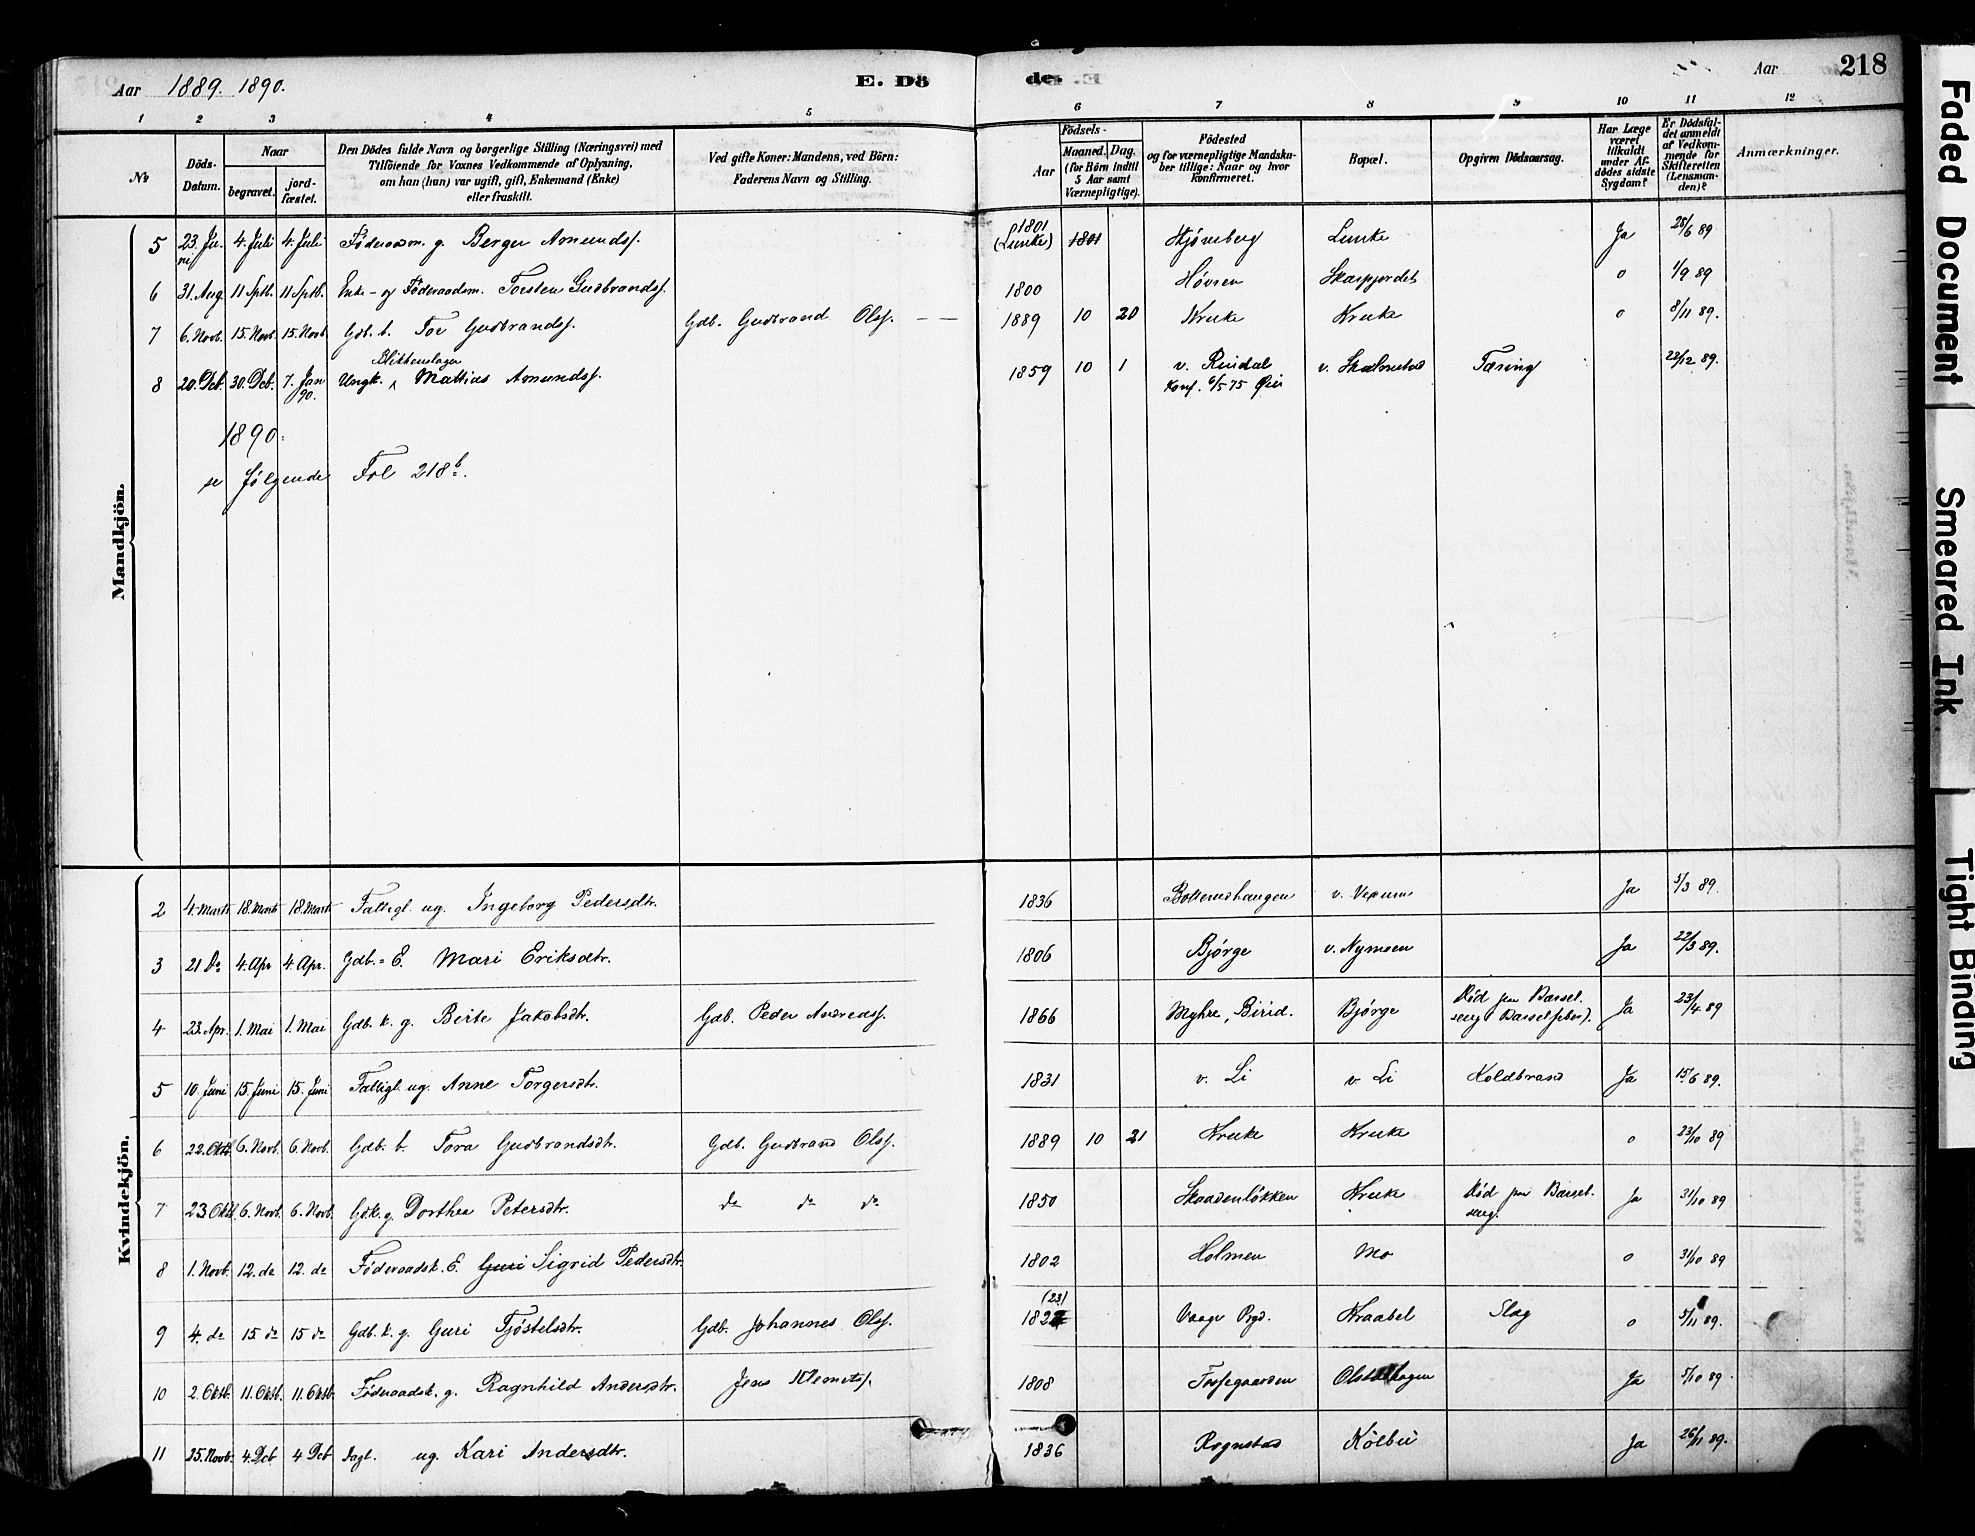 Aar 1889. 1890.
E. Dö
de. E.
Aar
218
1 2 3 4 5 6 7 8 9 10 11 12
№
Döds-Datum.
Naar
begravet.
jord-fæstet.
Den Dödes fulde Navn og borgerlige Stilling (Næringsvei) med
Tilföiende for Voxnes Vedkommende af Oplysning,
om han (hun) var ugift, gift, Enkemand (Enke)
eller fraskilt.
Ved gifte Koner: Mandens, ved Börn:
Faderens Navn og Stilling.
Födsels-
Aar
Maaned. Dag.
(for Börn indtil
5 Aar samt
Værnepligtige).
Födested
og for værnepligtige Mandska-
ber tillige: Naar og hvor
Konfirmeret.
Bopæl.
Opgiven Dödsaarsag.
Har Læge
været
tilkaldt
under Af-
dödes sidste
Sygdom?
Er Dödsfal-
det anmeldt
af Vedkom-
mende for
Skifteretten
(Lensman-
den)?
Anmærkninger.
Mandkjön.
5 23. Juni 4. Juli 4. Juli Föderaadm. g. Berger Amundsf. 1801 (Lunke) 1801 Hjøneberg Lunke Ja 25/6 89
6 31. Aug. 11 Sptb. 11 Sptb. Enke- og Föderaadsm. Torsten Gudbrandsf. 1800 Høvren o 1/9 89
7 6. Novb. 15. Novb. 15. Novb. Gdb. b. Tor Gudbrandsf. Gdb. Gudbrand Olsf. 1889 10 20 Kruke Kruke o 8/11 89.
Blikkenslager
8 20. Dcb. 30. Dcb. 7. Jan 90. Ungk. Mathias Amundsf. 1859 10 1 v. Rindal v. Skalmstad Tæring 22/12 89.
Konf. 6/5 75 Øier
1890:
se følgende Fol 218b.
Kvindekjön.
2 4. Marts 18. Marts 18. Marts Fattigl. ug. Ingeborg Pedersdtr. 1836 Botterudhaugen v. Vexum Ja 5/3 89.
3 21 do 4. Apr 4. Apr. Gdb.- E. Mari Eriksdtr. 1806 Bjørge v. Nymoen Ja 22/3 89.
4 23. Apr. 1. Mai 1. Mai Gdb. k. g. Birte Jakobsdtr. Gdb. Peder Andreasf. 1866 Myhre, Birid. Bjørge Død paa Barsel-seng (Barselfeber). Ja 23/4 89
5 10. Juni 15. Juni 15. Juni Fattigl. ug. Anne Torgersdtr. 1831 v. Li v Li Koldbrand Ja 15/6 89.
6 22. Oktb. 6. Novb. 6. Novb. Gdb. b. Tora Gudbrandsdtr. Gdb. Gudbrand Olsf. 1889 10 21 Kruke Kruke o 23/10 89
7 23 Oktb. 6. Novb. 6. Novb. Gdk. g. Dorthea Petersdtr. do do do 1850 Skaadenløkken Kruke Død paa Barsel-seng. Ja 31/10 89
8 1. Novb. 12. do 12. do Föderaadsk. E. Guri Sigrid Pedersdtr. 1802 Holmen Mo o 31/10 89
9 4. do 15 do 15 do Gdb. k. g. Guri Tjøstelsdtr. Gdb. Johannes Olsf. (23) 182 Vaage Prgd. Kraabel Slag o 5/11 89.
10 2. Oktb. 11. Oktb. 11. Oktb. Föderaadsk. g. Ragnhild Andersdtr. Jens Klemetsf. 1808 Forsegaarden Ja 5/10 89
11 25. Novb. 4. Dcb 4 Dcb Dagl. ug. Kari Andersdtr. 1836 Rognstad Kölbu Ja 26/11 89.
Faded Document
Smeared Ink
Tight Binding